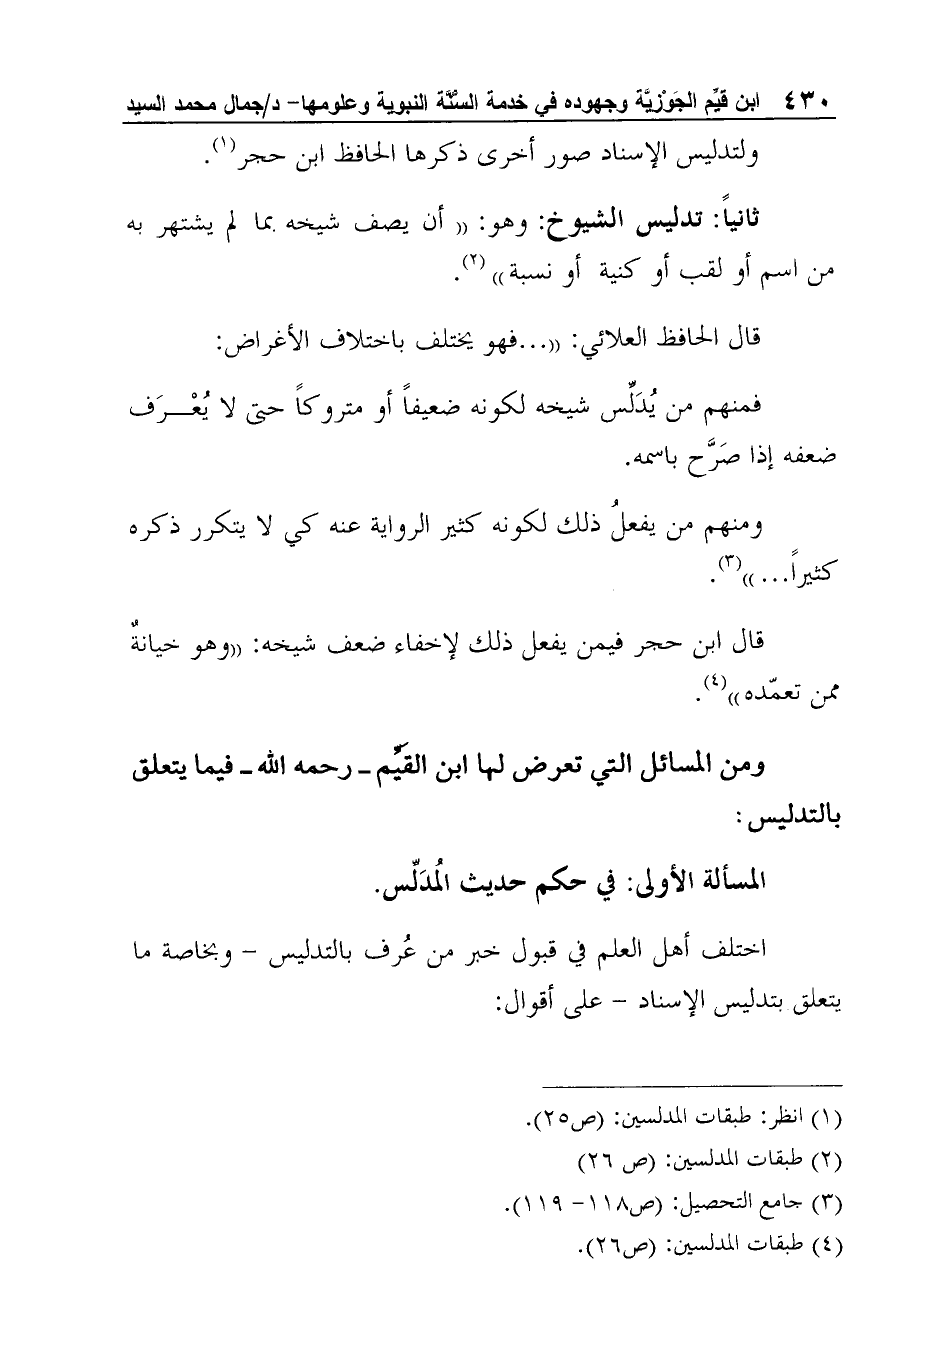 ٤٣٠ ابن قيِّم الجَوْزيَّة وجهوده في خدمة السُّنَّة النبوية وعلومها- د/جمال محمد السيد
ولتدليس الإسناد صور أخرى ذكرها الحافظ ابن حجر(١).
ثانياً: تدليس الشيوخ: وهو: (( أن يصف شيخه بما لم يشتهر به
من اسم أو لقب أو كنية أو نسبة))(٢).
قال الحافظ العلائي: ((...فهو يختلف باختلاف الأغراض:
فمنهم من يُدَلِّس شيخه لكونه ضعيفاً أو متروكاً حتى لا يُعْـرَف
ضعفه إذا صَرَّح باسمه.
ومنهم من يفعلُ ذلك لكونه كثير الرواية عنه كي لا يتكرر ذكره
كثيراً...))(٣).
قال ابن حجر فيمن يفعل ذلك لإخفاء ضعف شيخه: ((وهو خيانةٌ
ممن تعمّده))(٤).
ومن المسائل التي تعرض لها ابن القيِّم ـ رحمه الله ـ فيما يتعلق
بالتدليس:
المسألة الأولى: في حكم حديث المُدَلِّس.
اختلف أهل العلم في قبول خبر من عُرف بالتدليس – وبخاصة ما
يتعلق بتدليس الإسناد – على أقوال:
(١) انظر: طبقات المدلسين: (ص٢٥).
(٢) طبقات المدلسين: (ص ٢٦)
(٣) جامع التحصيل: (ص١١٨– ١١٩).
(٤) طبقات المدلسين: (ص٢٦).